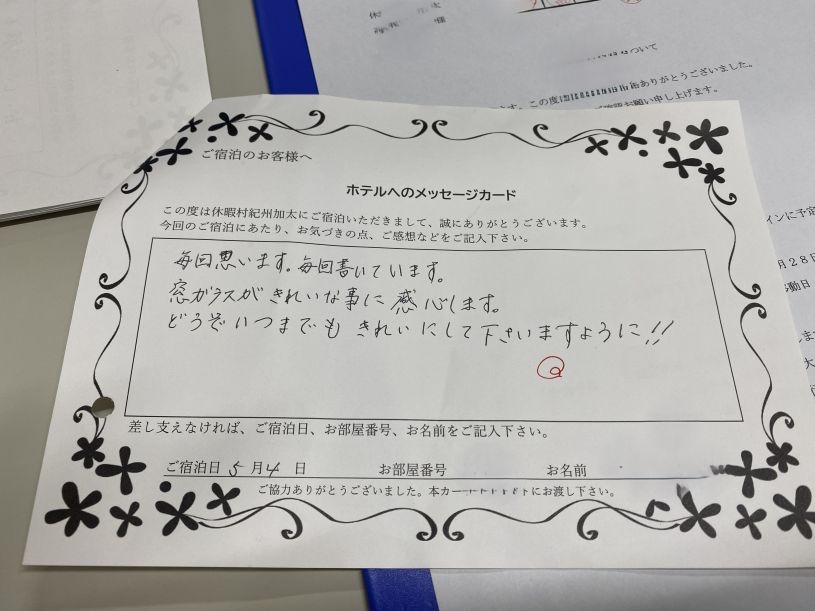 ついて
ありがとうございました。
す。この度は
お願い申し上げます。
インに予定
月28日
移動日
ご宿泊のお客様へ
ホテルへのメッセージカード
この度は休暇村紀州加太にご宿泊いただきまして、誠にありがとうございます。
今回のご宿泊にあたり、お気づきの点、ご感想などをご記入下さい。
毎回思います。毎回書いています。
窓ガラスがきれいな事に感心します。
どうぞいつまでもきれいにして下さいますように!!
差し支えなければ、ご宿泊日、お部屋番号、お名前をご記入下さい。
ご宿泊日 5月4日 お部屋番号 お名前
ご協力ありがとうございました。本カー にお渡し下さい。